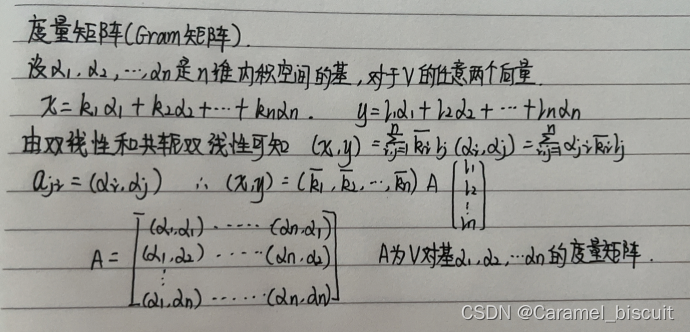 度量矩阵(Gram矩阵).
设α1,α2,…,αn是n维内积空间的基,对于V的任意两个向量
x=k1α1+k2α2+…+knαn. y=l1α1+l2α2+…+lnαn
由双线性和共轭双线性可知 (x,y)=∑ⁿi,j=1 k̅i lj (αi,αj)=∑ⁿi,j=1 αji k̅i lj
aji=(αi,αj) ∴ (x,y)=(k̅1,k̅2,…,k̅n) A [l1 l2 ⋮ ln]
A= [(α1,α1) ····· (αn,α1)
(α1,α2) ····· (αn,α2)
⋮
(α1,αn) ······ (αn,αn)]
A为V对基α1,α2,…αn的度量矩阵.
CSDN @Caramel_biscuit